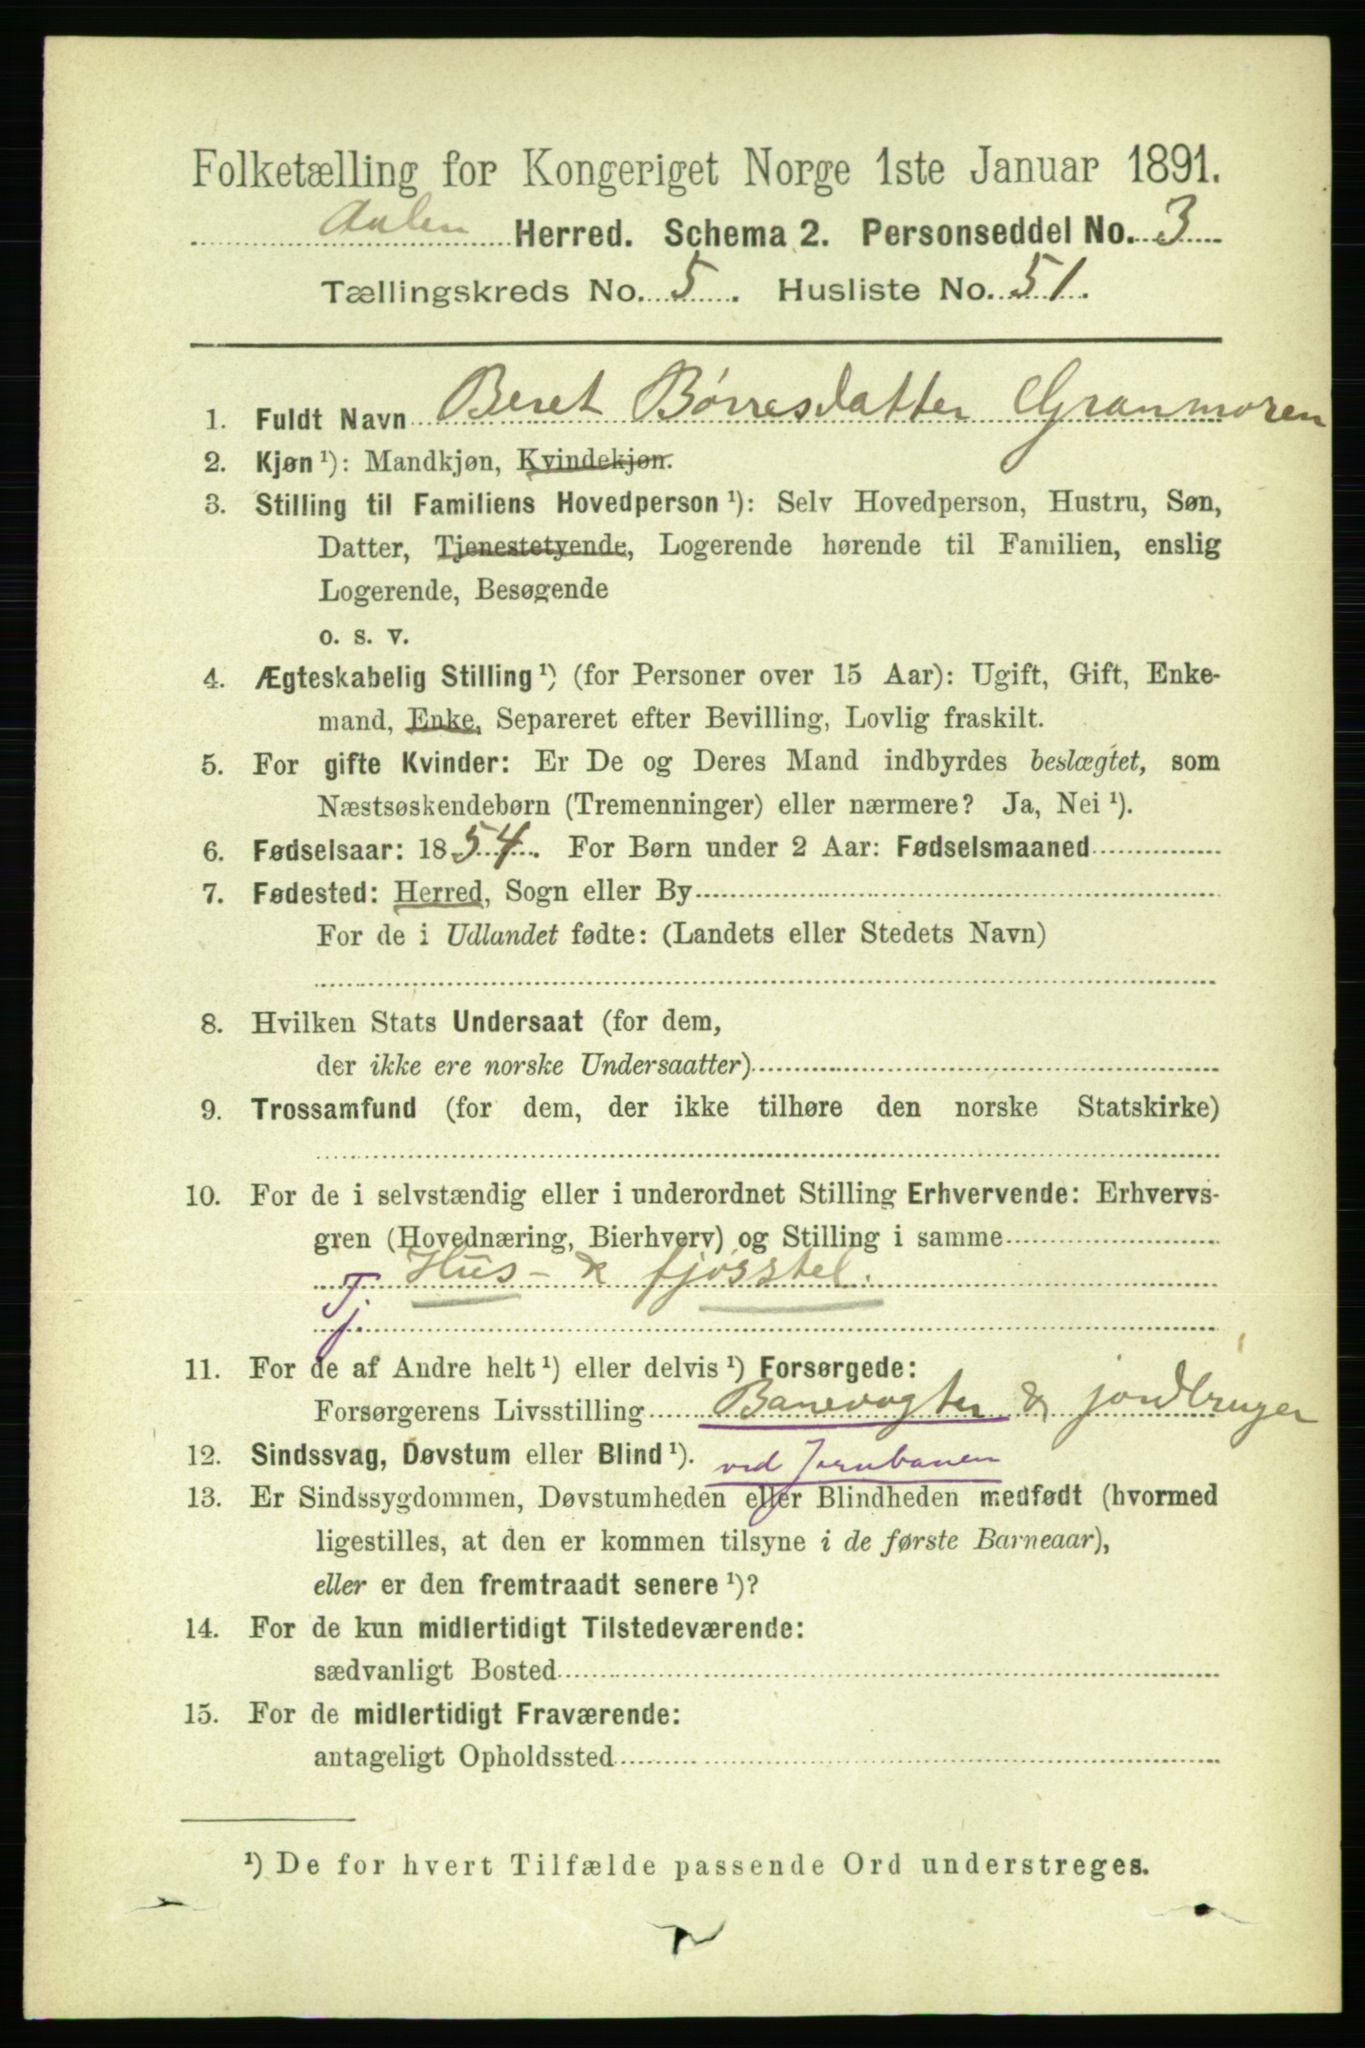 Folketælling for Kongeriget Norge 1ste Januar 1891.
Aalen Herred. Schema 2. Personseddel No. 3
Tællingskreds No. 5. Husliste No. 51.
1. Fuldt Navn Beret Børresdatter Granmoren
2. Kjøn ¹): Mandkjøn, Kvindekjøn.
3. Stilling til Familiens Hovedperson ¹): Selv Hovedperson, Hustru, Søn,
Datter, Tjenestetyende, Logerende hørende til Familien, enslig
Logerende, Besøgende
o. s. v.
4. Ægteskabelig Stilling ¹) (for Personer over 15 Aar): Ugift, Gift, Enke-
mand, Enke, Separeret efter Bevilling, Lovlig fraskilt.
5. For gifte Kvinder: Er De og Deres Mand indbyrdes beslægtet, som
Næstsøskendebørn (Tremenninger) eller nærmere? Ja, Nei ¹).
6. Fødselsaar: 1854. For Børn under 2 Aar: Fødselsmaaned
7. Fødested: Herred, Sogn eller By
For de i Udlandet fødte: (Landets eller Stedets Navn)
8. Hvilken Stats Undersaat (for dem,
der ikke ere norske Undersaatter)
9. Trossamfund (for dem, der ikke tilhøre den norske Statskirke)
10. For de i selvstændig eller i underordnet Stilling Erhvervende: Erhvervs-
gren (Hovednæring, Bierhverv) og Stilling i samme
Hus- & fjøsstel.
Tj.
11. For de af Andre helt ¹) eller delvis ¹) Forsørgede:
Forsørgerens Livsstilling Banevogter & jordbruger
12. Sindssvag, Døvstum eller Blind ¹). ved Jernbanen
13. Er Sindssygdommen, Døvstumheden eller Blindheden medfødt (hvormed
ligestilles, at den er kommen tilsyne i de første Barneaar),
eller er den fremtraadt senere ¹)?
14. For de kun midlertidigt Tilstedeværende:
sædvanligt Bosted
15. For de midlertidigt Fraværende:
antageligt Opholdssted
¹) De for hvert Tilfælde passende Ord understreges.